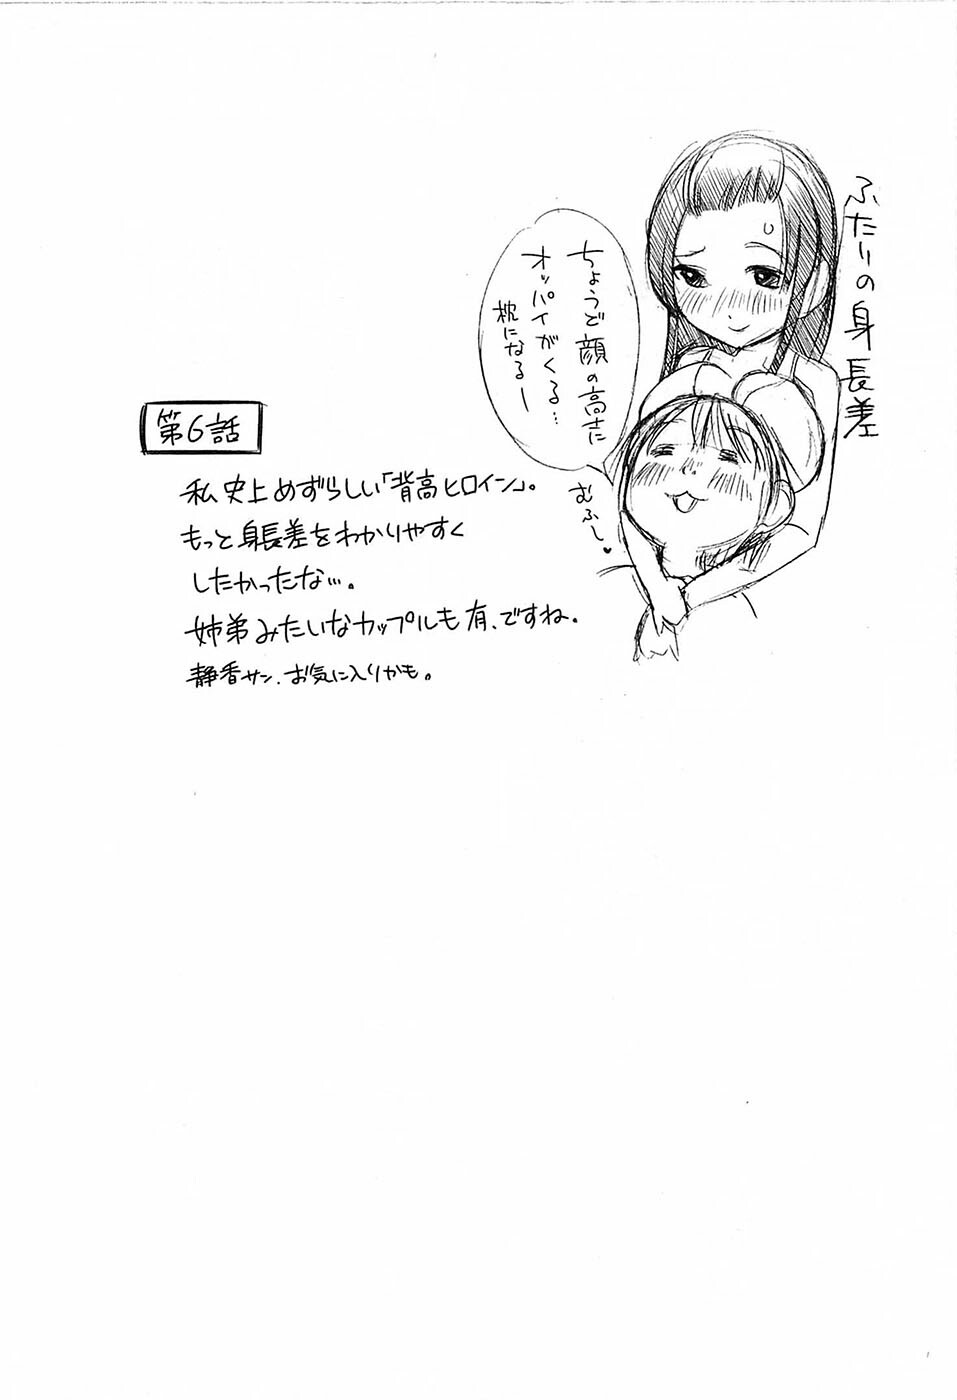 ふたりの身長差
ちょうど顔の高さに
オッパイがくる…
枕になるー
むふし♥
第6話
私史上めずらしい「背高ヒロイン」。
もっと身長差をわかりやすく
したかったな…。
姉弟みたいなカップルも有、ですね。
静香サン、お気に入りかも。